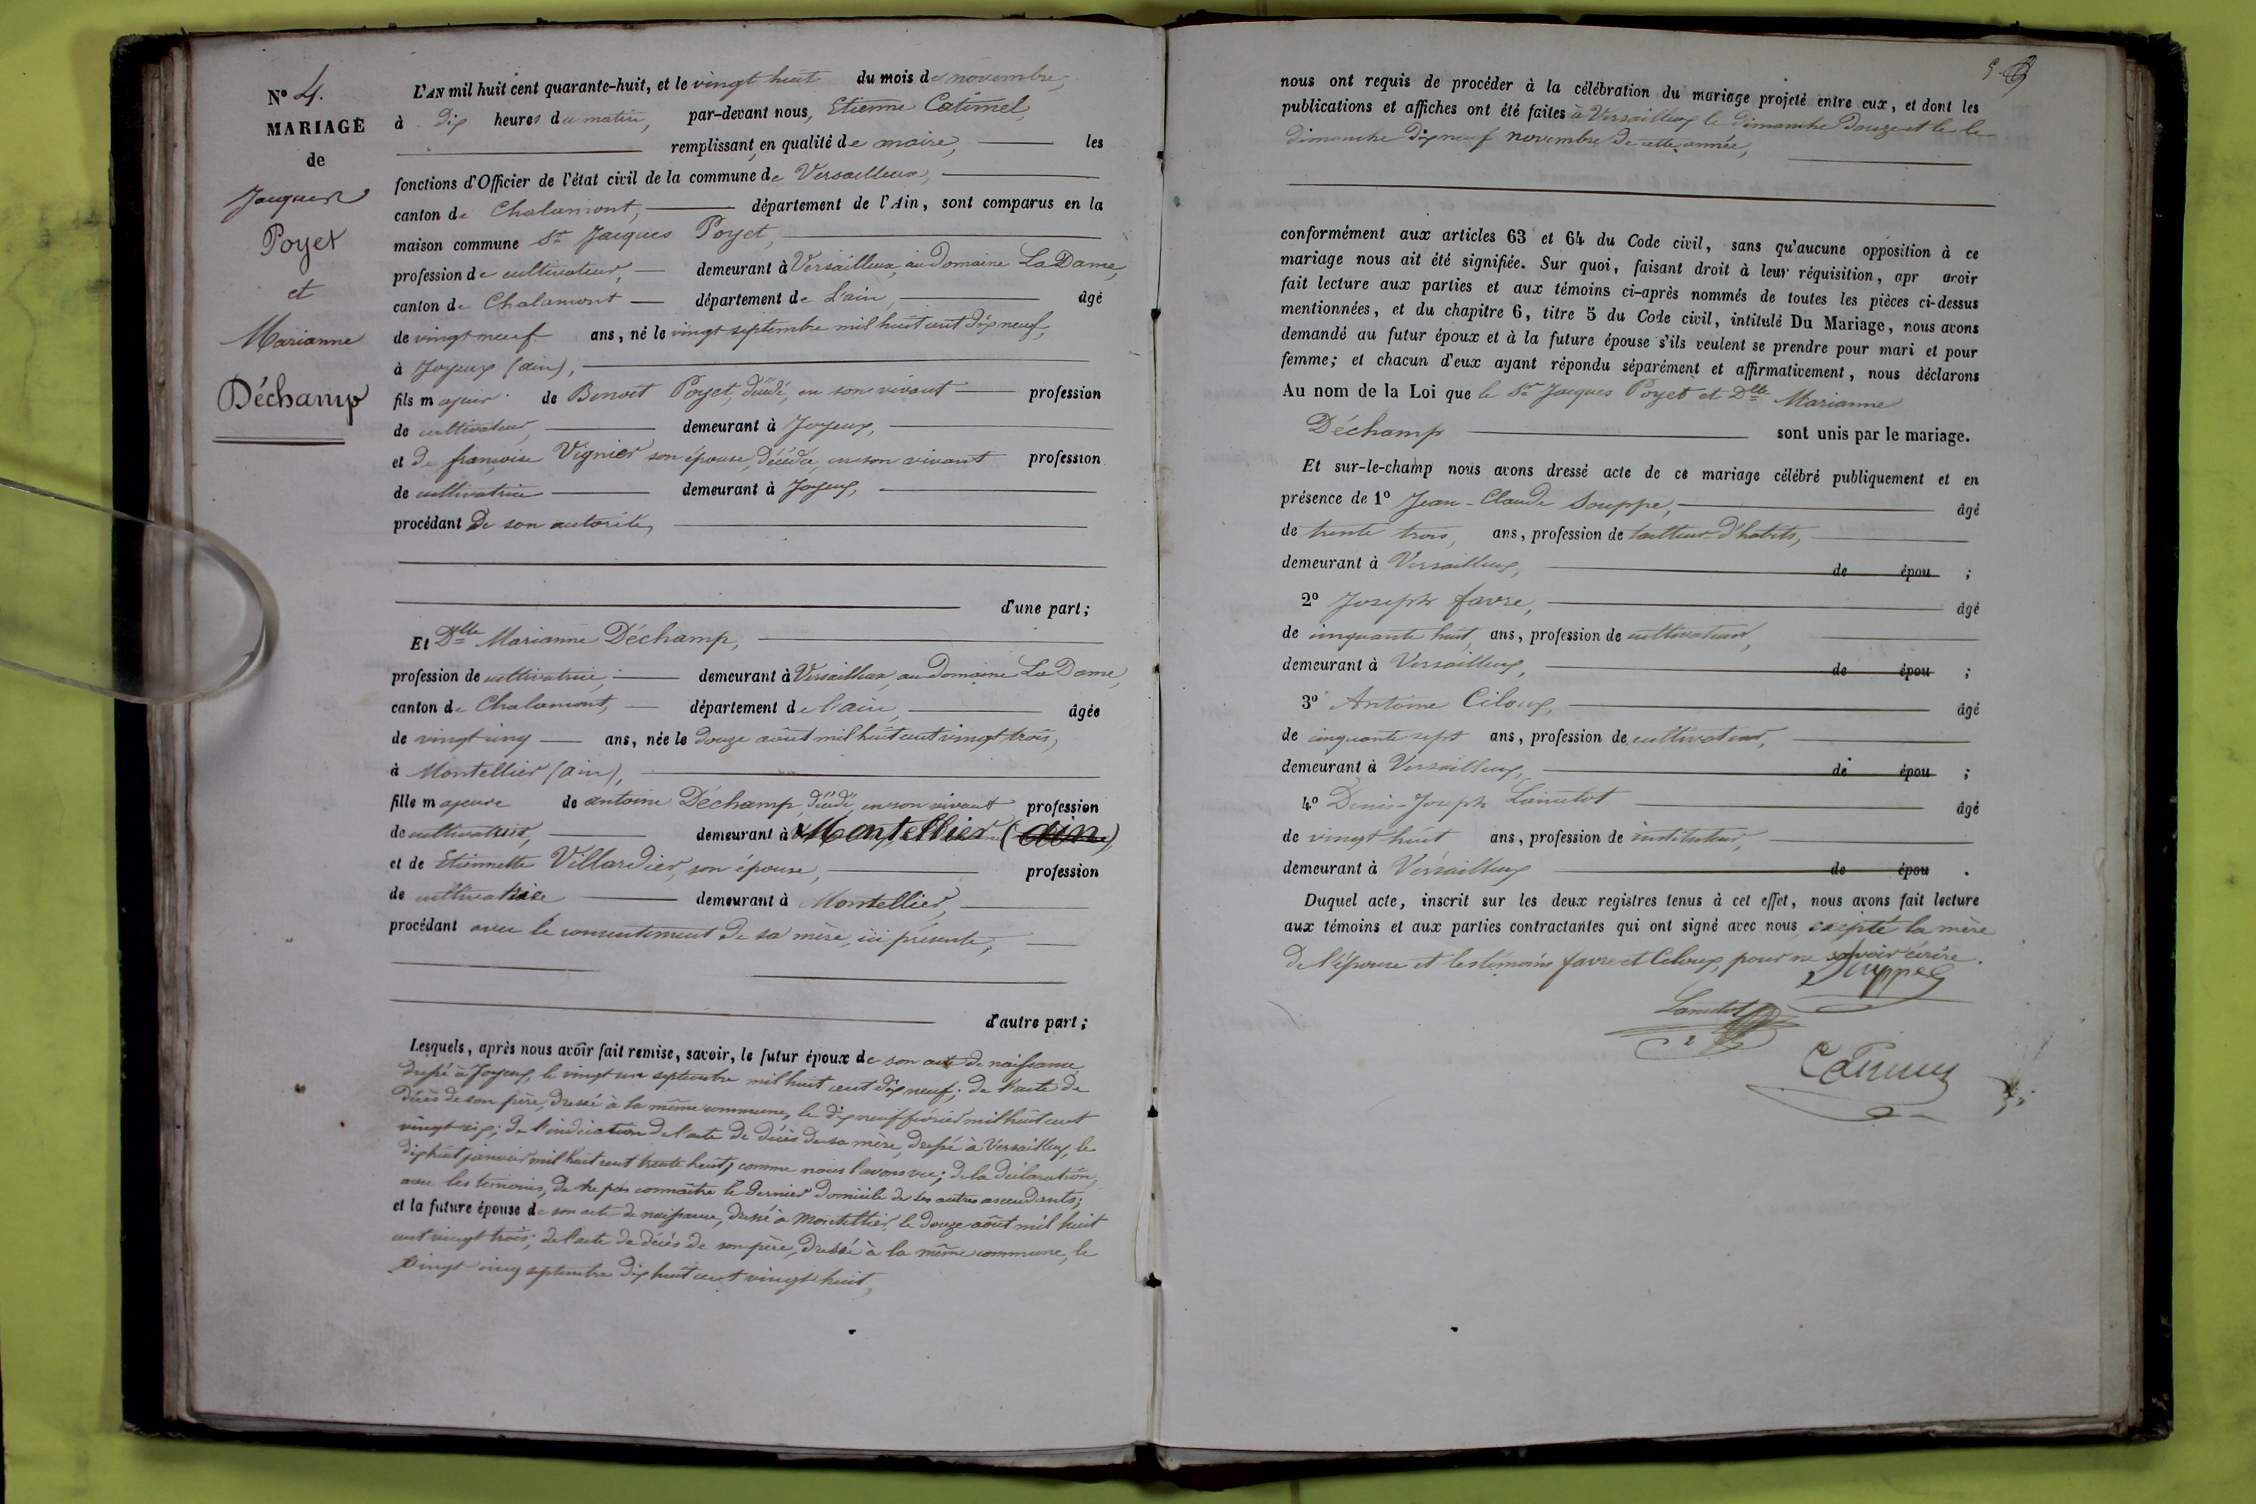 N° 4.
MARIAGE
de
Jacques
Poyet
et
Marianne
Déchamp
L'AN mil huit cent quarante-huit, et le vingt huit du mois de novembre,
à dix heures du matin, par-devant nous, Etienne Catimel,
remplissant, en qualité de maire, les
fonctions d'Officier de l'état civil de la commune de Versailleux,
canton de Chalamont, département de l'Ain, sont comparus en la
maison commune Sr Jacques Poyet,
profession de cultivateur, demeurant à Versailleux, au domaine La Dame,
canton de Chalamont, département de l'ain, âgé
de vingt neuf ans, né le vingt septembre mil huit cent dix neuf,
à Joyeux (ain),
fils majeur de Benoit Poyet, décédé, en son vivant profession
de cultivateur, demeurant à Joyeux,
et de françoise Vignier son épouse, décédée, en son vivant profession
de cultivatrice demeurant à Joyeux,
procédant de son autorité,
d'une part;
Et Dlle Marianne Déchamp,
profession de cultivatrice, demeurant à Versailleux, au domaine La Dame,
canton de Chalamont, département de l'ain, âgée
de vingt cinq ans, née le douze août mil huit cent vingt trois,
à Montellier (ain),
fille majeure de antoine Déchamp, décédé, en son vivant profession
de cultivateur, demeurant à Montellier (ain)
et de Etiennette Villardier, son épouse, profession
de cultivatrice demeurant à Montellier,
procédant avec le consentement de sa mère, ici présente,
d'autre part;
Lesquels, après nous avoir fait remise, savoir, le futur époux de son acte de naissance
dressé à Joyeux, le vingt un septembre mil huit cent dix neuf; de l'acte de
décès de son père, dressé à la même commune, le dix neuf février mil huit cent
vingt six; de l'indication de l'acte de décès de sa mère, dressé à Versailleux, le
dix huit janvier mil huit cent trente huit, comme nous l'avons vu; de la déclaration,
avec les témoins, de ne pas connaître le dernier domicile de ses autres ascendants;
et la future épouse de son acte de naissance, dressé à Montellier, le douze août mil huit
cent vingt trois; de l'acte de décès de son père, dressé à la même commune, le
vingt cinq septembre dix huit cent vingt huit,
nous ont requis de procéder à la célébration du mariage projeté entre eux, et dont les
publications et affiches ont été faites à Versailleux le dimanche douze et le le
dimanche dix neuf novembre de cette année,
conformément aux articles 63 et 64 du Code civil, sans qu'aucune opposition à ce
mariage nous ait été signifiée. Sur quoi, faisant droit à leur réquisition, apr avoir
fait lecture aux parties et aux témoins ci-après nommés de toutes les pièces ci-dessus
mentionnées, et du chapitre 6, titre 5 du Code civil, intitulé Du Mariage, nous avons
demandé au futur époux et à la future épouse s'ils veulent se prendre pour mari et pour
femme; et chacun d'eux ayant répondu séparément et affirmativement, nous déclarons
Au nom de la Loi que le Sr Jacques Poyet et Dlle Marianne
Déchamp sont unis par le mariage.
Et sur-le-champ nous avons dressé acte de ce mariage célébré publiquement et en
présence de 1° Jean-Claude Souppe, âgé
de trente trois, ans, profession de tailleur d'habits,
demeurant à Versailleux, de épou ;
2° Joseph favre, âgé
de cinquante huit, ans, profession de cultivateur,
demeurant à Versailleux, de épou ;
3° Antoine Ciloux, âgé
de cinquante sept ans, profession de cultivateur,
demeurant à Versailleux, de épou ;
4° Denis-Joseph Lamelot âgé
de vingt huit ans, profession de instituteur,
demeurant à Versailleux de épou .
Duquel acte, inscrit sur les deux registres tenus à cet effet, nous avons fait lecture
aux témoins et aux parties contractantes qui ont signé avec nous, excepté la mère
de l'épouse et les témoins favre et Ciloux, pour ne savoir écrire.
Souppe
Lamelot
Catimel